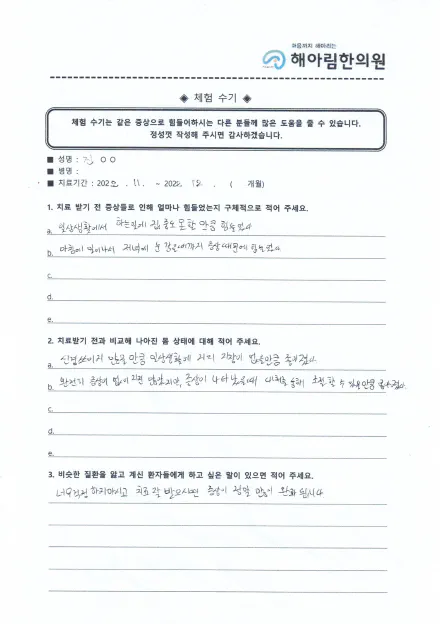 마음까지 헤아리는
해아림한의원
◈ 체험 수기 ◈
체험 수기는 같은 증상으로 힘들어하시는 다른 분들께 많은 도움을 줄 수 있습니다.
정성껏 작성해 주시면 감사하겠습니다.
■ 성명 : 진 ○○
■ 병명 :
■ 치료기간 : 202 . 11. ~ 2022. 12. ( 개월)
1. 치료 받기 전 증상들로 인해 얼마나 힘들었는지 구체적으로 적어 주세요.
a. 일상생활에서 하는일에 집중도 못할 만큼 힘들었다
b. 아침에 일어나서 저녁에 눈 감을때까지 증상때문에 힘들었다
c.
d.
e.
2. 치료받기 전과 비교해 나아진 몸 상태에 대해 적어 주세요.
a. 신경쓰이지 않을 만큼 일상생활에 거의 지장이 없을만큼 좋아졌다.
b. 완전히 증상이 없어 지진 않았지만, 증상이 나타났을때 대처를 통해 조절 할 수 있을만큼 좋아졌다
c.
d.
e.
3. 비슷한 질환을 앓고 계신 환자들에게 하고 싶은 말이 있으면 적어 주세요.
너무걱정하지마시고 치료 잘 받으시면 증상이 정말 많이 완화 됩니다